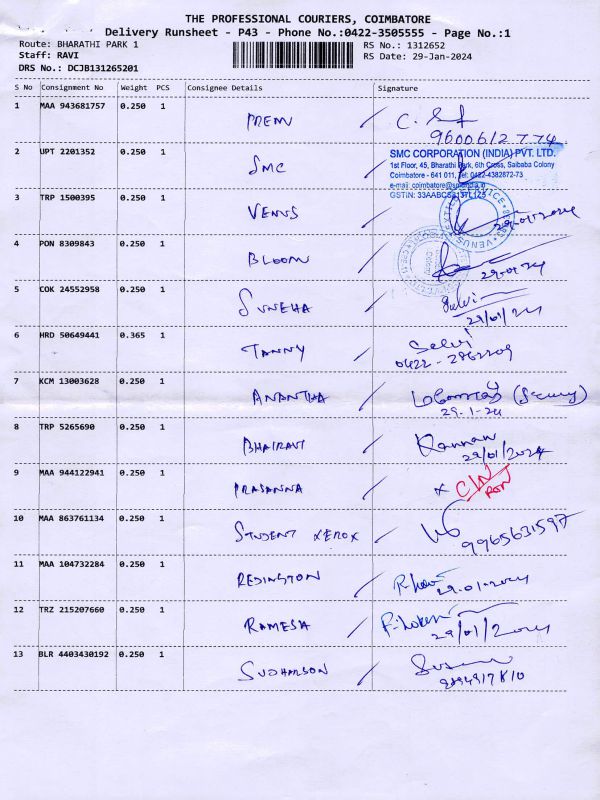 THE PROFESSIONAL COURIERS, COIMBATORE
Delivery Runsheet - P43 - Phone No.:0422-3505555 - Page No.:1
Route: BHARATHI PARK 1 RS No.: 1312652
Staff: RAVI RS Date: 29-Jan-2024
DRS No.: DCJB131265201
S No Consignment No Weight PCS Consignee Details Signature
1 MAA 943681757 0.250 1 PREM / C.
9600612774
2 UPT 2201352 0.250 1 SMC /
SMC CORPORATION (INDIA) PVT. LTD.
1st Floor, 45, Bharathi Park, 6th Cross, Saibaba Colony
Coimbatore - 641 011, Tel: 0422-4382872-73
GSTIN:
3 TRP 1500395 0.250 1 VENUS / 29-01-2024
4 PON 8309843 0.250 1 BLOOM / 29-01-24
5 COK 24552958 0.250 1 SUNEHA / Selvi
29/01/24
6 HRD 50649441 0.365 1 TANNY / Selvi
0422 - 2862209
7 KCM 13003628 0.250 1 ANANTHA /
29-1-24
8 TRP 5265690 0.250 1 BHAIRAVI / Kannan
29/01/2024
9 MAA 944122941 0.250 1 PRASANNA / x C/N
10 MAA 863761134 0.250 1 STUDENT XEROX /
9965631597
11 MAA 104732284 0.250 1 REDINGTON / 29-01-2024
12 TRZ 215207660 0.250 1 RAMESH /
29/01/2024
13 BLR 4403430192 0.250 1 SUDHARSON /
9894917810